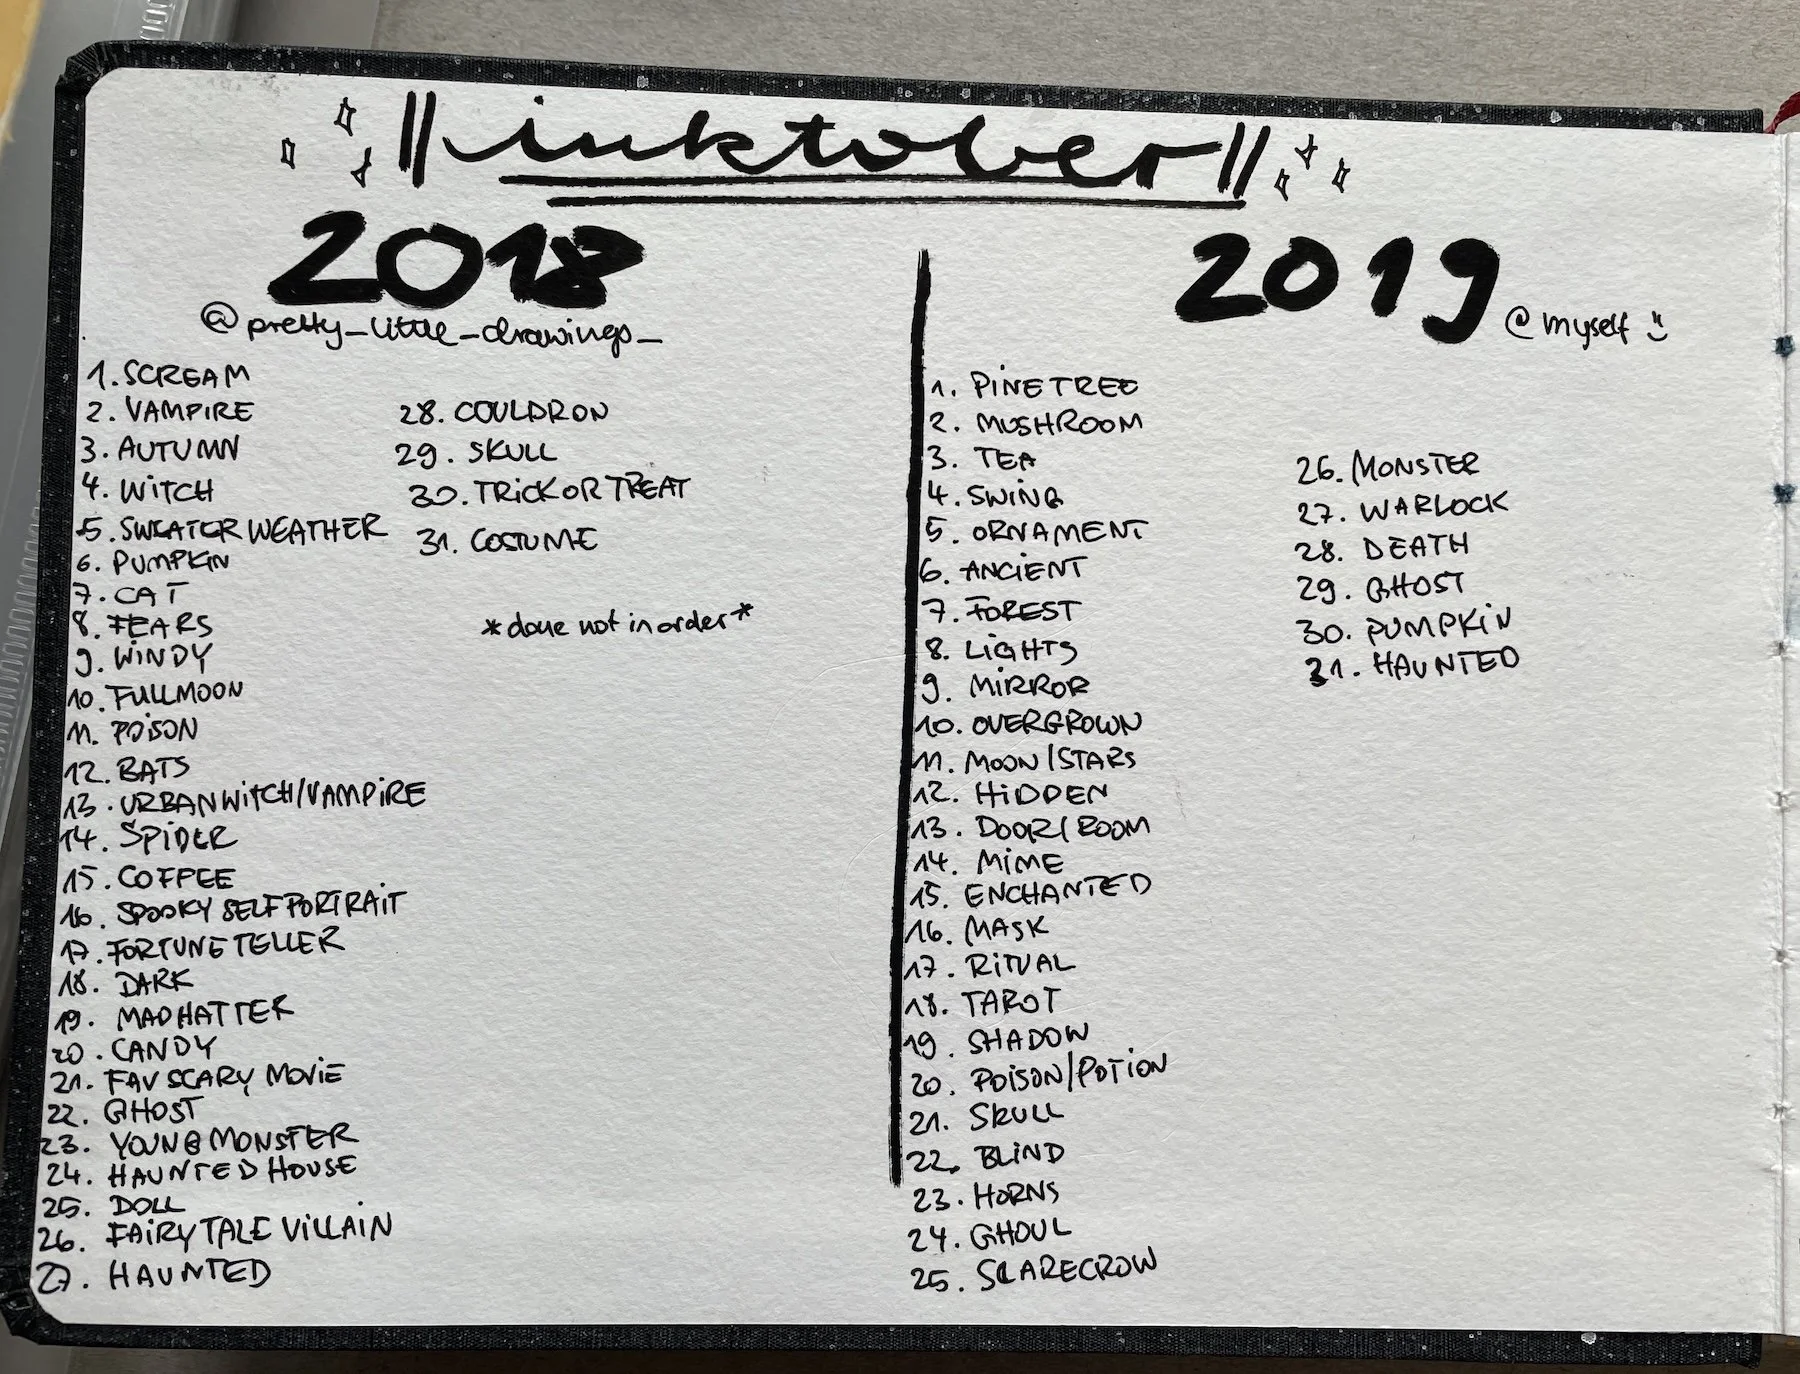 inktober
2018
@pretty_little_drawings_
1. SCREAM
2. VAMPIRE
3. AUTUMN
4. WiTCH
5. SWEATER WEATHER
6. PUMPKiN
7. CAT
8. FEARS
9. WiNDY
10. FULLMOON
11. POiSON
12. BATS
13. URBAN WiTCH/VAMPiRE
14. SPiDER
15. COFFEE
16. SPOOKY SELFPORTRAiT
17. FORTUNE TELLER
18. DARK
19. MADHATTER
20. CANDY
21. FAV SCARY MOViE
22. GHOST
23. YOUNG MONSTER
24. HAUNTED HOUSE
25. DOLL
26. FAiRYTALE ViLLAiN
27. HAUNTED
28. COULDRON
29. SKULL
30. TRiCK OR TREAT
31. COSTUME
*done not in order*
2019
@myself
1. PiNETREE
2. MUSHROOM
3. TEA
4. SWiNG
5. ORNAMENT
6. ANCiENT
7. FOREST
8. LiGHTS
9. MiRROR
10. OVERGROWN
11. MOON/STARS
12. HiDDEN
13. DOOR/ROOM
14. MiME
15. ENCHANTED
16. MASK
17. RiTUAL
18. TAROT
19. SHADOW
20. POiSON/POTiON
21. SKULL
22. BLiND
23. HORNS
24. GHOUL
25. SCARECROW
26. MONSTER
27. WARLOCK
28. DEATH
29. GHOST
30. PUMPKiN
31. HAUNTED